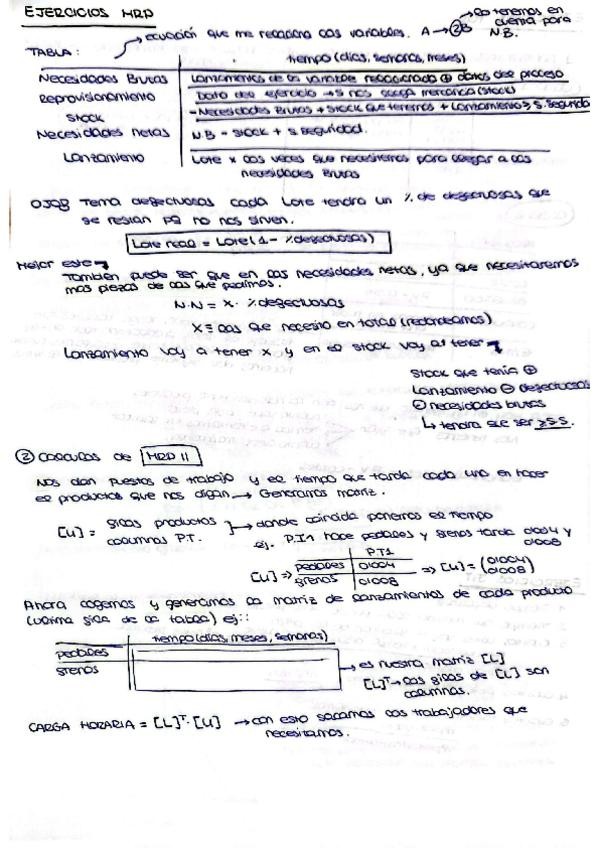 EJERCICIOS MRP
→ lo tenemos en cuenta para N.B.
→ ecuación que me relaciona las variables. A → 2B
TABLA:
tiempo (días, semanas, meses)
Necesidades Brutas | Lanzamientos de la variable relacionada ⊕ datos del proceso
Reprovisionamiento | Dato del ejercicio → si nos llega mercancía (stock)
Stock | - Necesidades Brutas + Stock que tenemos + Lanzamiento ≥ S. Seguridad
Necesidades netas | N.B - Stock + S seguridad.
Lanzamiento | Lote x las veces que necesitemos para llegar a las necesidades Brutas
OJO! Tema defectuosas cada Lote tendrá un % de defectuosas que
se restan pq no nos sirven.
Lote real = Lote (1 - % defectuosas)
Mejor este
También puede ser que en las necesidades netas, ya que necesitaremos
mas piezas de las que pedimos.
N.N = X · % defectuosas
X ≡ las que necesito en total (redondeamos)
Lanzamiento voy a tener X y en el stock voy a tener
Stock que tenía ⊕
Lanzamiento ⊖ defectuosas
⊖ necesidades brutas
↳ tendrá que ser ≥ S.S.
② Cálculos de MRP II
Nos dan puestos de trabajo y el tiempo que tarda cada uno en hacer
el productos que nos digan → Generamos matriz.
[U] = filas productos
columnas P.T.
→ donde coincida ponemos el tiempo
ej. P.T1 hace pedales y frenos tarda 0'1004 y
0'1008
P.T1
[U] ⇒ pedales | 0'1004 ⇒ [U] = (0'1004
frenos | 0'1008 0'1008)
Ahora cogemos y generamos la matriz de lanzamientos de cada producto
(última fila de la tabla) ej::
tiempo (días, meses, semanas)
pedales
frenos
→ es nuestra matriz [L]
[L]ᵀ → las filas de [L] son
columnas.
CARGA HORARIA = [L]ᵀ · [U] → con esto sacamos los trabajadores que
necesitamos.